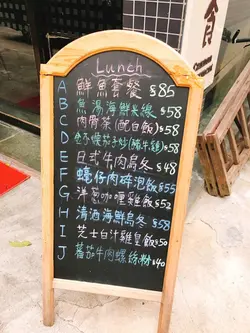 Lunch
A 鮮魚套餐 $85
B 魚湯海鮮米線 $58
C 肉骨茶(配白飯) $58
D 蕃茄 $58
E 日式牛肉烏冬 $48
F 蠔仔肉碎泡飯 $55
G 洋葱咖喱雞飯 $52
H 清酒海鮮烏冬 $58
I 芝士白汁雞皇飯 $50
J 蕃茄牛肉螺絲粉 $40
食